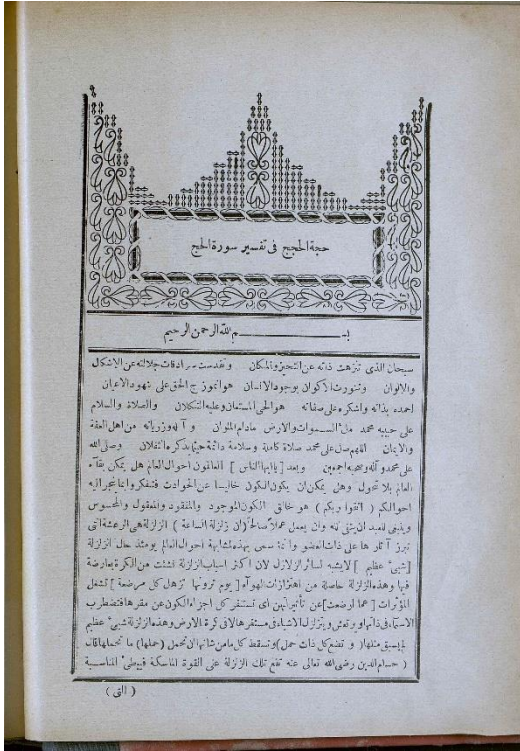 حجة الحجج فى تفسير سورة الحج
بسم الله الرحمن الرحيم
سبحان الذى تنزهت ذاته عن التحيز والمكان وتقدست سرادقات جلالته عن الاشكال
والالوان وتنورت الاكوان بوجود الانسان هو انموزج الحق على شهود الاعيان
احمده بذاته واشكره على صفاته هو الحى المستعان وعليه التكلان والصلاة والسلام
على حبيبه محمد ملئ السموات والارض مادام الملوان و آله وزرياته من اهل العفة
والايمان اللهم صل على محمد صلاة كاملة وسلامة دائمة حيثما يذكره الثقلان وصلى الله
على محمد وآله وصحبه اجمعين وبعد [ ياايها الناس ] الغالون احوال العالم هل يمكن بقاء
العالم بلا تحول وهل يمكن ان يكون الكون خاليا عن الحوادث فتفكروا بما ينجر اليه
احوالكم ( اتقوا ربكم ) هو خالق الكون الموجود والمفقود والمعقول والمحسوس
وينبغى للعبد ان يتقى لله وان يعمل عملا صالحا ( ان زلزلة الساعة ) الزلزلة هى الرعشة التى
تبرز آثارها على ذات العضو وانما سمى بهذه لمشابهة احوال العالم يومئذ حال الزلزلة
[ شئ عظيم ] لايشبه لسائر الزلازل لان اكثر اسباب الزلزلة نشئت من الكرة بعارضة
فيها وهذه الزلزلة حاصلة من اهتزازات الهواء [ يوم ترونها تزهل كل مرضعة ] لشغل
المؤثرات [ عما ارضعت ] عن تأثيراتهن اى تستنفر كل اجزاء الكون عن مقرها فتضطرب
الاشياء فى ذاتها وترتعش ويتزلزل الاشياء فى مستقرها الا فى كرة الارض وهذه الزلزلة شئ عظيم
لم يسبق مثلها ( و تضع كل ذات حمل ) وتسقط كل ما من شانها ان تحمل ( حملها ) ما تحملها قال
( حسام الدين رضى الله تعالى عنه تقع تلك الزلزلة على القوة الماسكة فيعطى المناسبة
( التى )